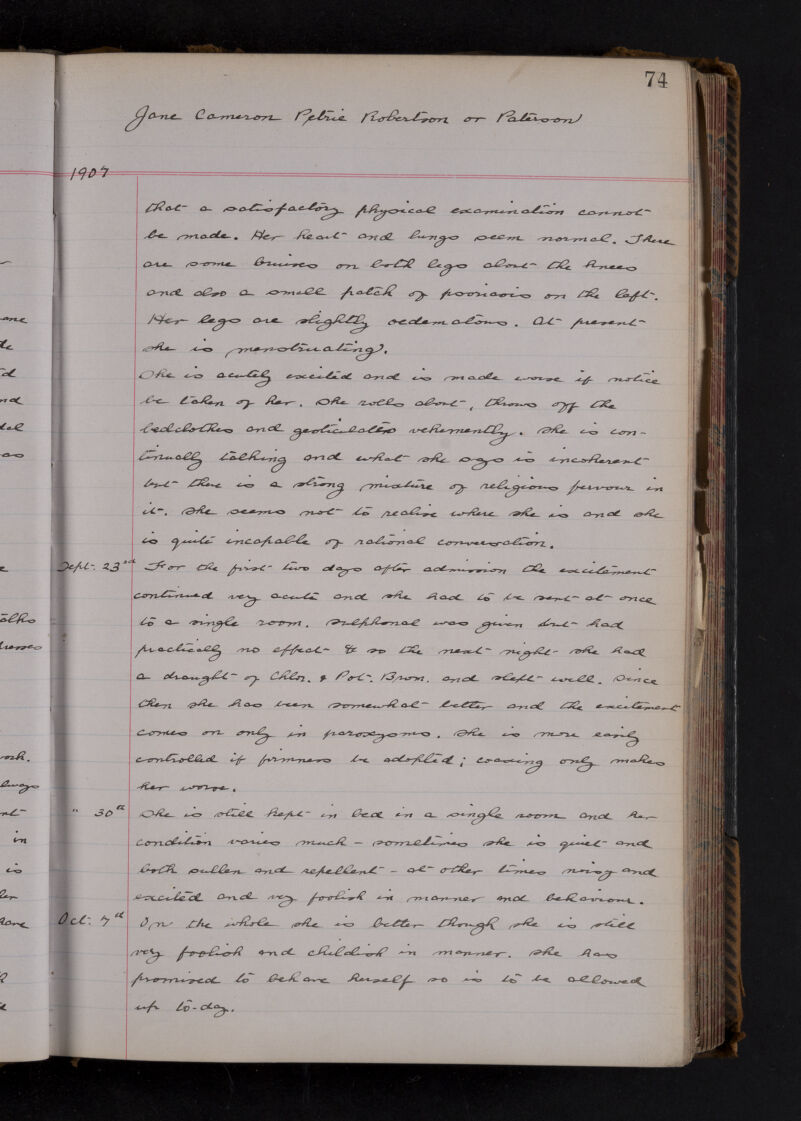 74
Jane Cameron Petrie Robertson or Paterson
1907
that a satisfactory physical examination cannot
be made. Her heart and lungs seem normal. There
are some bruises on both legs about the knees
and also a small patch of psoriasis on the left.
Her legs are slightly oedematous. At present
she is menstruating.
She is acutely excited and is made worse if notice
be taken of her. She rolls about, throws off the
bedclothes and gesticulates vehemently. She is con-
tinually talking and what she says is incoherent
but there is a strong mixture of religious fervour in
it. She seems not to realise where she is and she
is quite incapable of rational conversation.
Sept. 23rd For the first two days after admission the excitement
continued very acute and she had to be sent at once
to a single room. Sulphonal was given but had
practically no effect & so the next night she had
a draught of Chlor. & Pot. Brom. and slept well. Since
then she has been somewhat better and the excitement
comes on only in paroxysms. She is more easily
controlled if firmness be adopted; coaxing only makes
her worse.
" 30th She is still kept in bed in a single room and her
condition varies much - sometimes she is quiet and
both sullen and repellent - at other times noisy and
excited and very foolish in manner and behaviour.
Oct. 7th On the whole she is better though she is still
very foolish and childish in manner. She has
promised to behave herself so is to be allowed
up to-day.